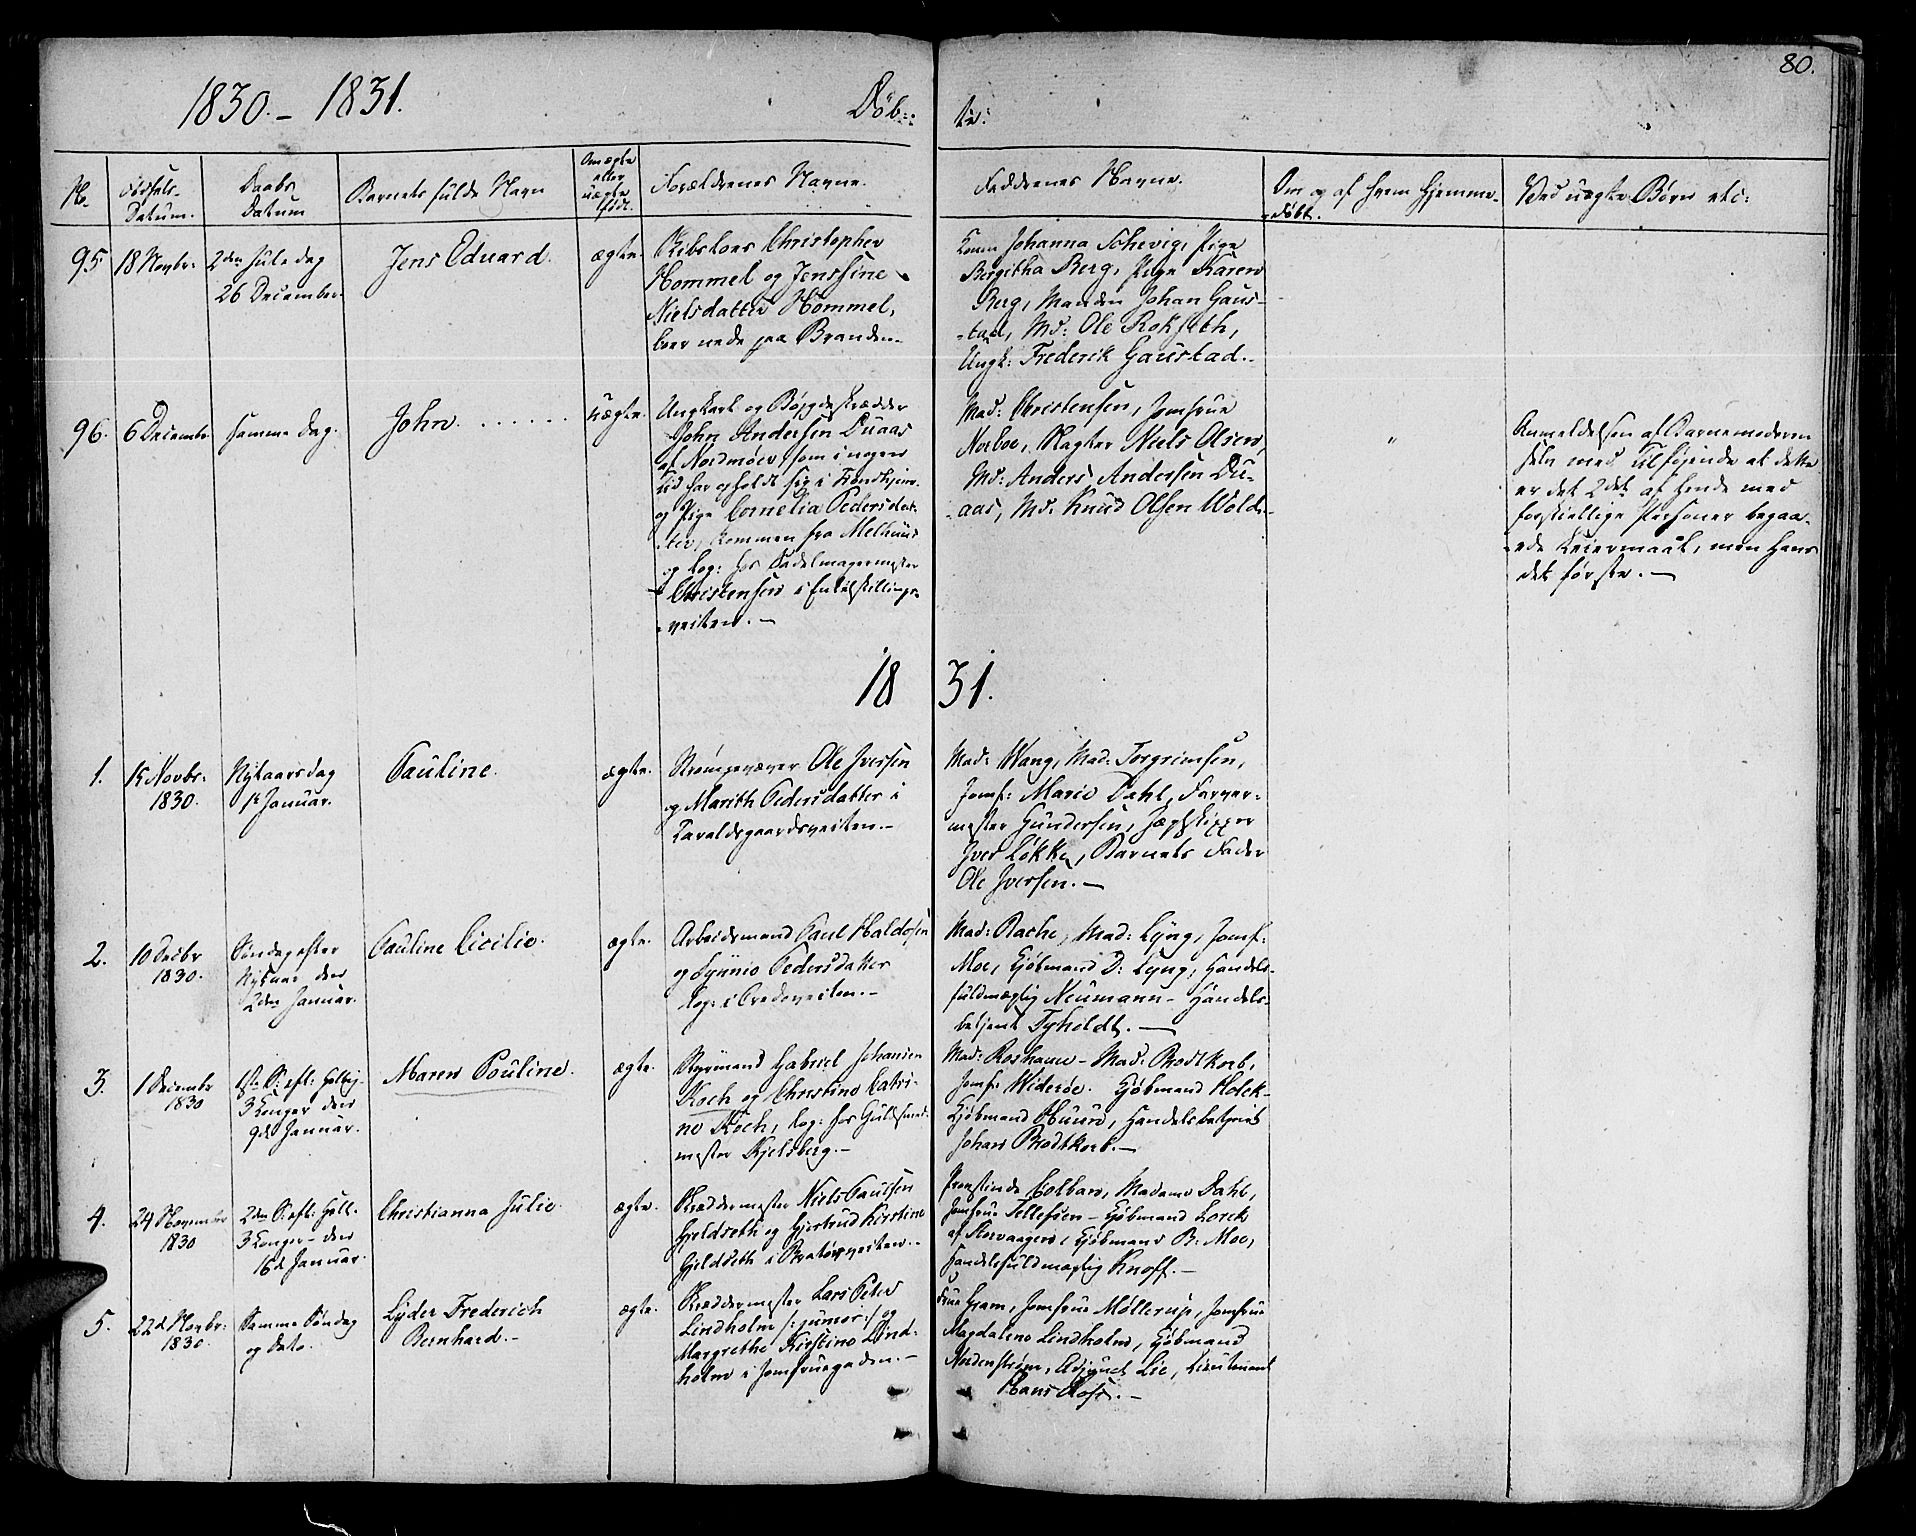 80.
1830.- 1831.
Døb=
te:
No.
Fødsels-
Datum.
Daabs
Datum
Barnets fulde Navn
Om ægte
eller
uægte
født.
Forældrenes Navne.
Faddernes Navne.
Om og af hvem hjemme-
døbt.
Ved uægte Børn etc:
95
18 Novbr:
2den Juledag
26 December.
Jens Eduard.
ægte.
Christopher
Hommel og Jenssine
Nielsdatter Hommel,
boer nede paa Branden.-
Kone Johanna Schevig, Pige
Bergitha Berg, Pige Karen
Berg, Manden Johan Gaus-
-tad, Md: Ole Rokseth,
Ungk: Frederik Gaustad.-
96.
6 December
samme Dag.
John.
uægte.
Ungkarl og Bøygdeskrædder
John Andersen Duaas
af Nordmøer, som i nogen
Tid har opholdt sig i Trondhjem
og Pige Cornelia Pedersdat-
-ter, kommen fra Melhuus
og log: hos Sadelmagermester
Christensen i Enkelskillings-
-veiten.-
Mad: Christensen, Jomfrue
Norboe, Slagter Niels Olsen,
Md: Anders Andersen Du-
-aas, Md: Knud Olsen Wold.-
"
Anmeldelsen af Barnemoderen
selv med Tilføjende at dette
er det 2det af hende med
forskiellige Personer begaa-
-ede Leiermaal, men hans
det første.-
1831.
1.
15 Novbr:
1830.
Nytaarsdag
1e Januar.
Pauline.
ægte.
Strømpevæver Ole Iversen
og Marith Pedersdatter i
Haraldsgaardsveiten.-
Mad: Wang, Mad: Torgrimsen,
Jomf: Marie Dahl, Farver-
mester Gundersen, Jægtskipper
Iver Løkke, Barnets Fader
Ole Iversen.-
2.
10 Decbr
1830.
Søndag efter
Nytaar den
2den Januar.
Pauline Cicilie.
ægte.
Arbeidsmand Paul Haldorsen
og Synnio Pedersdatter
log: i Predeveiten.-
Mad: Rache, Mad: Lyng, Jomf:
Moe, Kjøbmand D: Lyng, Handels-
fuldmægtig Neumann- Handels-
betjent Tyholdt.-
3.
1 December
1830
1ste S: eft: hellig-
3 Konger den
9de Januar.
Maren Pouline.
ægte.
Styrmand Gabriel Johansen
Koch og Christine Catri-
ne Koch, log: hos Guldsmed-
mester Kjelsberg.-
Mad: Roshauw- Mad: Brodtkorb,
Jomf: Widerøe. Kjøbmand Holck-
Kjøbmand Huun, Handelsbetjent
Johan Brodtkorb.-
4.
24 November
1830
2den S: eft: Hell-
3 Konger- den
16de Januar.
Christianna Julie.
ægte.
Skræddermester Niels Paulsen
Gjeldseth og Gjertrud Kirstine
Gjeldseth i Bratørveiten.-
Provstinde Colban, Madame Dahl,
Jomfrue Tellefsen- Kjøbmand Lorck
af Storvaagen, Kjøbmand B: Moe,
Handelsfuldmægtig Knoff.-
5.
22de Novbr:
1830.
Samme Søndag
og Dato.
Lyder Frederich
Bernhard.-
ægte.
Skræddermester Lars Peter
Lindholm /:junior:/ og
Margrethe Kirstine Lind-
holm i Jomfrugaden.-
Frue Gram, Jomfrue Møllerup, Jomfrue
Magdalene Lindholm, Kjøbmand
Nordenstrøm, Adjunct Lie, Lieutenant
Hans Rosi.-